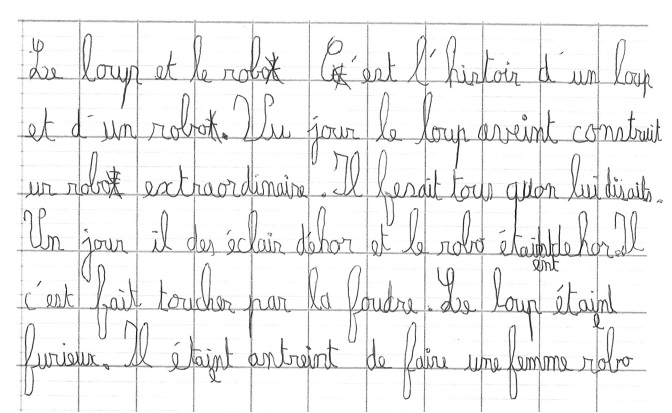 Le loup et le robot C'est l'histoir d'un loup
et d'un robot. Un jour le loup aveint construit
un robot extraordinaire. Il fesait tous quon lui disaits.
Un jour il des éclair déhor et le robo étaint dehor. Il
ent
c'est fait toucher par la foudre. Le loup étaint
e
furieux. Il étaint antreint de faire une femme robo
e